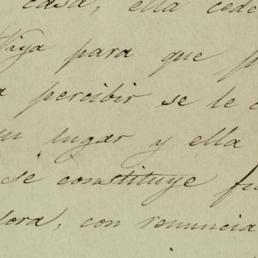 casa, ella cede
para que p
percibir se le
lugar y ella
se constituye fi
dora, con renuncia